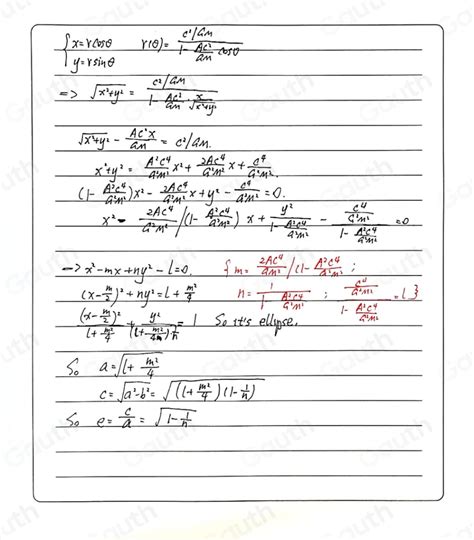 { x=rcosθ   r(θ)= (c²/GM)/(1 - (Ac²/GM) cosθ)
y=rsinθ
=> √(x²+y²) = (c²/GM)/(1 - (Ac²/GM) · x/√(x²+y²))
√(x²+y²) - Ac²x/GM = c²/GM.
x²+y² = (A²c⁴/G²M²)x² + (2Ac⁴/G²M²)x + c⁴/G²M².
(1- A²c⁴/G²M²)x² - (2Ac⁴/G²M²)x + y² - c⁴/G²M² = 0.
x² - (2Ac⁴/G²M²)/(1- A²c⁴/G²M²) x + y²/(1- A²c⁴/G²M²) - (c⁴/G²M²)/(1- A²c⁴/G²M²) = 0
-> x²-mx+ny²-l=0. { m= (2Ac⁴/G²M²)/(1- A²c⁴/G²M²) ;
(x- m/2)² + ny² = l + m²/4   n= 1/(1- A²c⁴/G²M²) ; (c⁴/G²M²)/(1- A²c⁴/G²M²) = l }
(x- m/2)²/(l+ m²/4) + y²/((l+ m²/4)1/n) = 1 So it's ellipse.
So a=√(l+ m²/4)
c=√(a²-b²) = √((l+ m²/4)(1- 1/n))
So e= c/a = √(1- 1/n)
Gauth